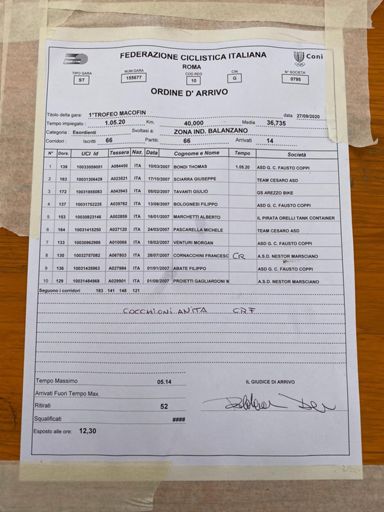 FEDERAZIONE CICLISTICA ITALIANA
ROMA
Coni
TIPO GARA NUM GARA COD.REG CIN. N° SOCIETÀ
ST 155677 10 G 0795
ORDINE D' ARRIVO
Titolo della gara: 1°TROFEO MACOFIN data 27/09/2020
Tempo impiegato: 1.05.20 Km. 40,000 Media 36,735
Categoria: Esordienti Svoltasi a: ZONA IND. BALANZANO
Corridori: Iscritti 66 Partiti: 66 Arrivati 14
N° Dors. UCI Id Tessera Naz. Data Cognome e Nome Tempo Società
1 139 ITA 10/03/2007 BONDI THOMAS 1.05.20 ASD G. C. FAUSTO COPPI
2 163 ITA 17/10/2007 SCIARRA GIUSEPPE TEAM CESARO ASD
3 172 ITA 05/02/2007 TAVANTI GIULIO GS AREZZO BIKE
4 137 ITA BOLOGNESI FILIPPO ASD G. C. FAUSTO COPPI
5 153 ITA 16/01/2007 MARCHETTI ALBERTO IL PIRATA ORELLI TANK CONTAINER
6 164 ITA 24/03/2007 PASCARELLA MICHELE TEAM CESARO ASD
7 133 ITA VENTURI MORGAN ASD G. C. FAUSTO COPPI
8 130 ITA CORNACCHINI FRANCESC CR A.S.D. NESTOR MARSCIANO
9 136 ITA 01/01/2007 ABATE FILIPPO ASD G. C. FAUSTO COPPI
10 129 ITA PROIETTI GAGLIARDONI M A.S.D. NESTOR MARSCIANO
Seguono i corridori 183 141 148 121
COCCHIONI ANITA CRF
Tempo Massimo 05.14
IL GIUDICE DI ARRIVO
Arrivati Fuori Tempo Max.
Ritirati 52
Squalificati ####
Esposto alle ore: 12,30